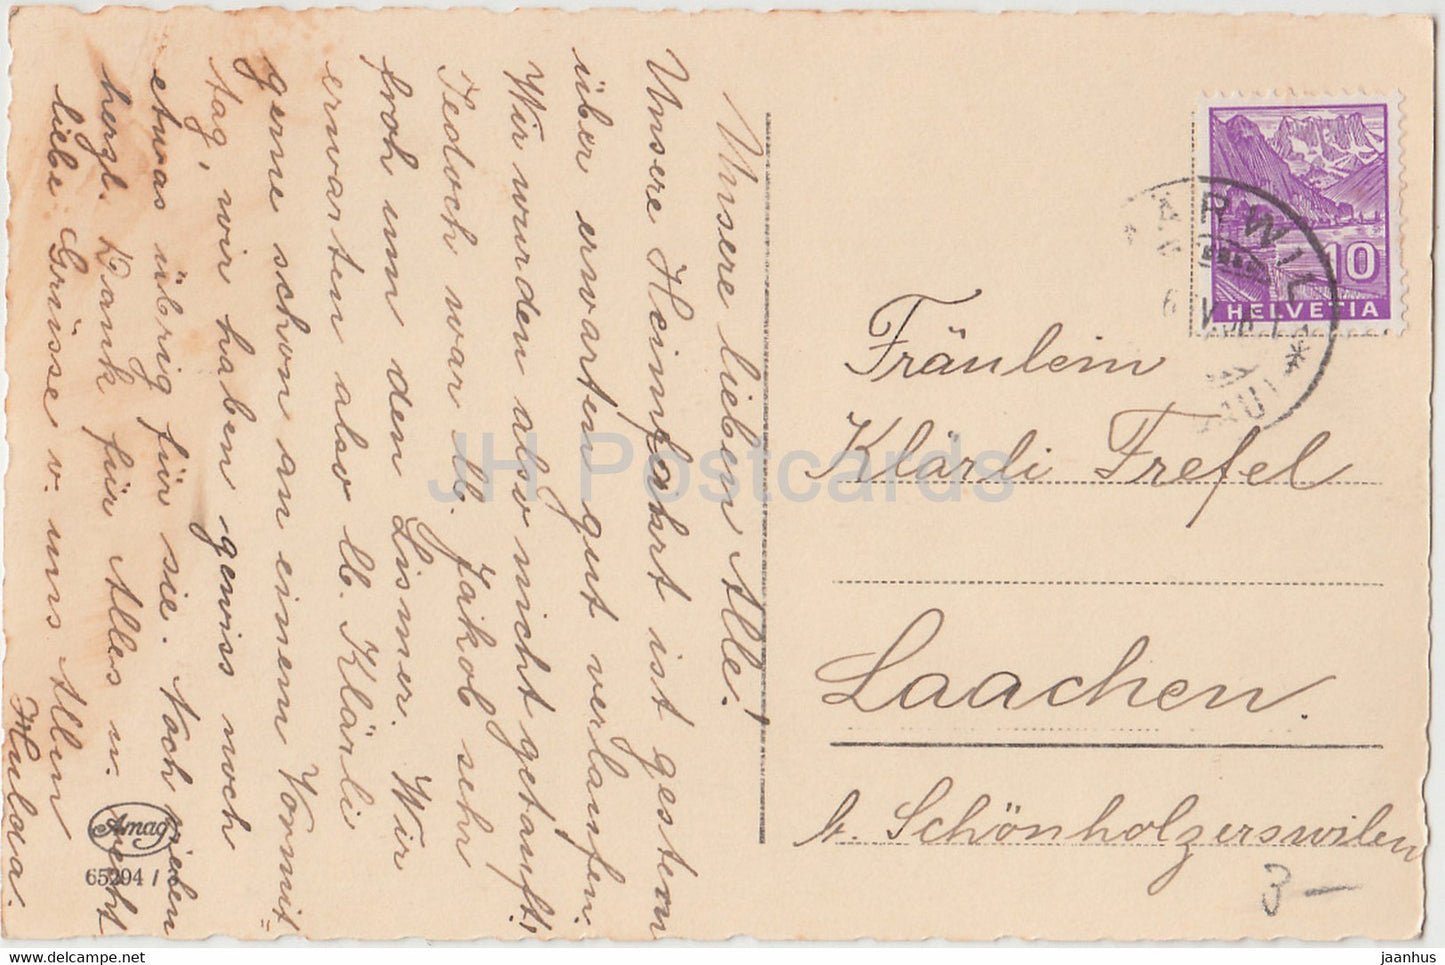 Unsere lieben Alle!
Unsere Heimfahrt ist gestern
über erwarten gut verlaufen.
Wir wurden also nicht getauft!
Jedoch war lb. Jakob sehr
froh um den Lismer. Wir
erwarten also lb. Klärli
gerne schon an einem Vormit=
tag, wir haben gewiss noch
etwas übrig für sie. Noch
herzl. Dank für Alles u. recht
liebe Grüsse v. uns Allen
Hulda.
Amag
65294 /
HELVETIA
10
Fräulein
Klärli Frefel
Laachen.
b. Schönholzerswilen
3 —
JH Postcards
jaanhus